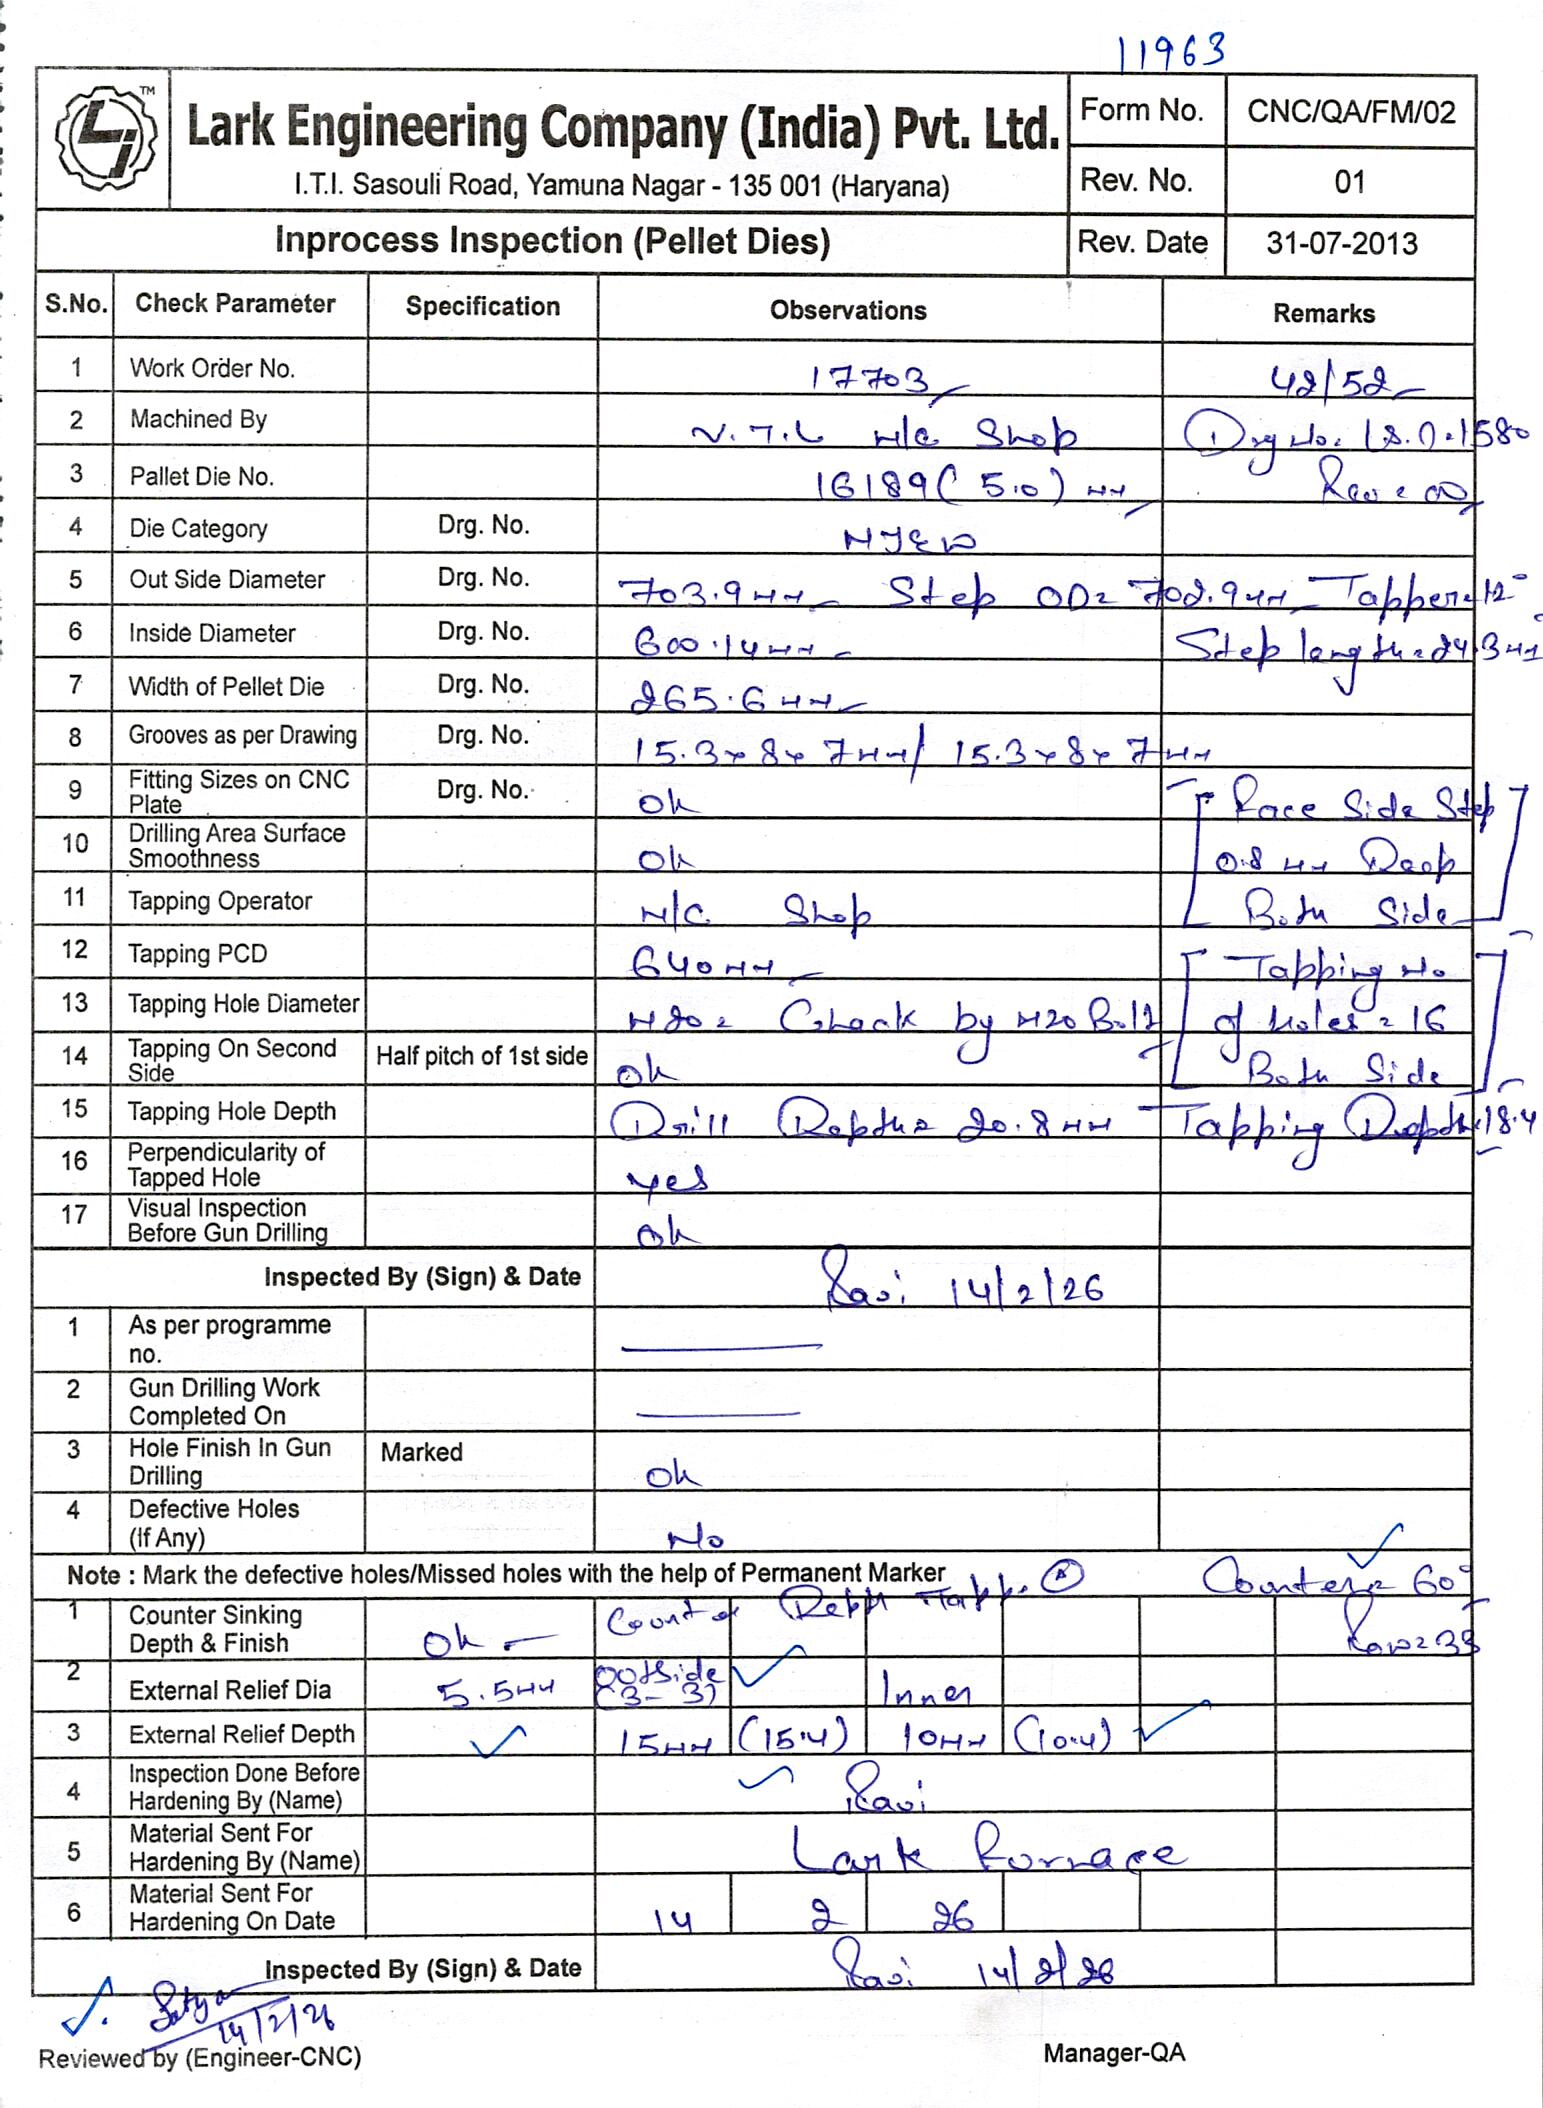 11963
TM
Lark Engineering Company (India) Pvt. Ltd.
I.T.I. Sasouli Road, Yamuna Nagar - 135 001 (Haryana)
Form No. CNC/QA/FM/02
Rev. No. 01
Inprocess Inspection (Pellet Dies) Rev. Date 31-07-2013
S.No. Check Parameter Specification Observations Remarks
1 Work Order No. 17703 42/52
2 Machined By V.T.L M/C Shop Drg No. 1580
3 Pallet Die No. 16189 (5.0) MM Rev = 00
4 Die Category Drg. No. NEW
5 Out Side Diameter Drg. No. 703.9 MM Step OD = 702.9 MM Tapper = 12°
6 Inside Diameter Drg. No. 600.14 MM Step length = 24.3 MM
7 Width of Pellet Die Drg. No. 265.6 MM
8 Grooves as per Drawing Drg. No. 15.3 x 8 x 7 MM / 15.3 x 8 x 7 MM
9 Fitting Sizes on CNC Plate Drg. No. Ok [ Face Side Step
10 Drilling Area Surface Smoothness Ok 0.8 MM Deep
11 Tapping Operator M/C Shop Both Side ]
12 Tapping PCD 640 MM [ Tapping No
13 Tapping Hole Diameter M20 = Check by M20 Bolt of holes = 16
14 Tapping On Second Side Half pitch of 1st side Ok Both Side ]
15 Tapping Hole Depth Drill Depth = 20.8 MM Tapping Depth = 18.4
16 Perpendicularity of Tapped Hole Yes
17 Visual Inspection Before Gun Drilling Ok
Inspected By (Sign) & Date Ravi 14/2/26
1 As per programme no.
2 Gun Drilling Work Completed On
3 Hole Finish In Gun Drilling Marked Ok
4 Defective Holes (If Any) No
Note : Mark the defective holes/Missed holes with the help of Permanent Marker Counter = 60°
1 Counter Sinking Depth & Finish Ok Counter Depth A Row = 33
2 External Relief Dia 5.5 MM Outside (3-3) Inner
3 External Relief Depth 15 MM (15.4) 10 MM (10.4)
4 Inspection Done Before Hardening By (Name) Ravi
5 Material Sent For Hardening By (Name) Lark Furnace
6 Material Sent For Hardening On Date 14 2 26
Inspected By (Sign) & Date Ravi 14/2/26
Satya
14/2/26
Reviewed by (Engineer-CNC) Manager-QA